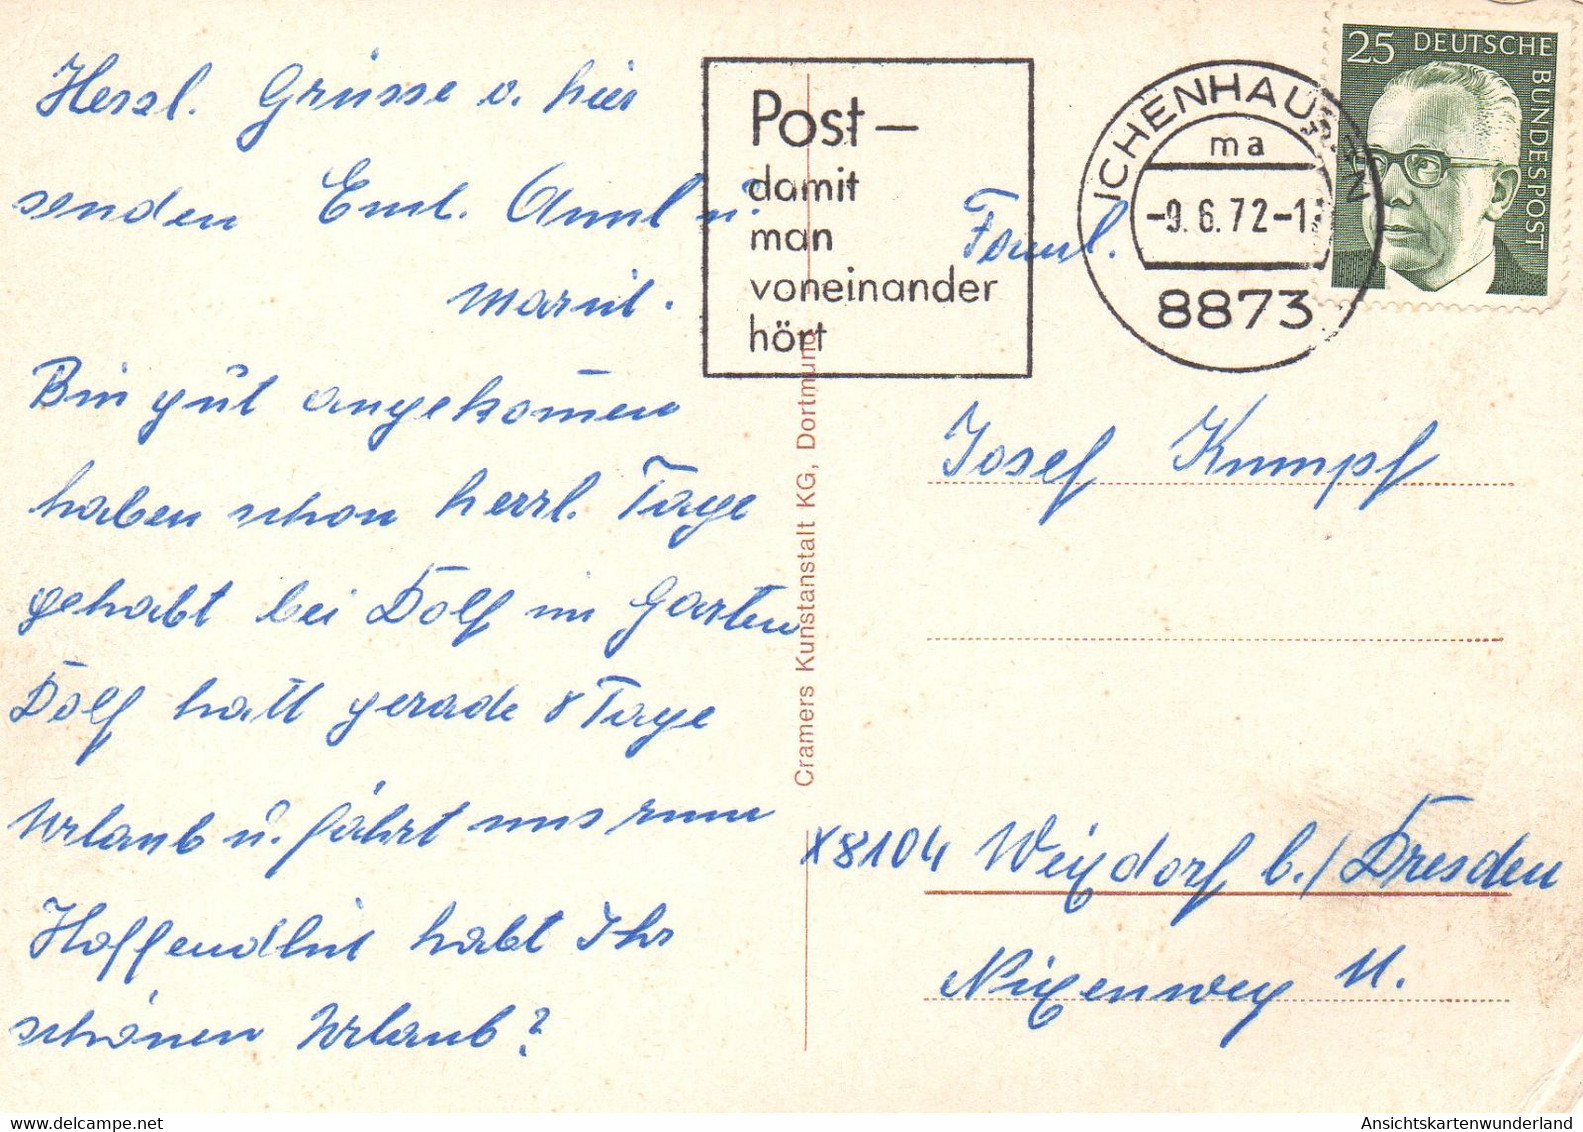 Herzl. Grüsse v. hier
senden Euch. Annl u.
Marit.
Bin gut angekom̄en
haben schon herrl. Tage
gehabt bei Dolf im Garten
Dolf hatt gerade 8 Tage
Urlaub u. fährt uns rum
Hoffendlich habt Ihr
schönen Urlaub?
Post –
damit
man
voneinander
hört
ICHENHAUSEN
ma
-9.6.72-1
8873
25 DEUTSCHE BUNDESPOST
Cramers Kunstanstalt KG, Dortmund
Faml.
Josef Kumpf
X8104 Weixdorf b./Dresden
Nixenweg 11.
Ansichtskartenwunderland